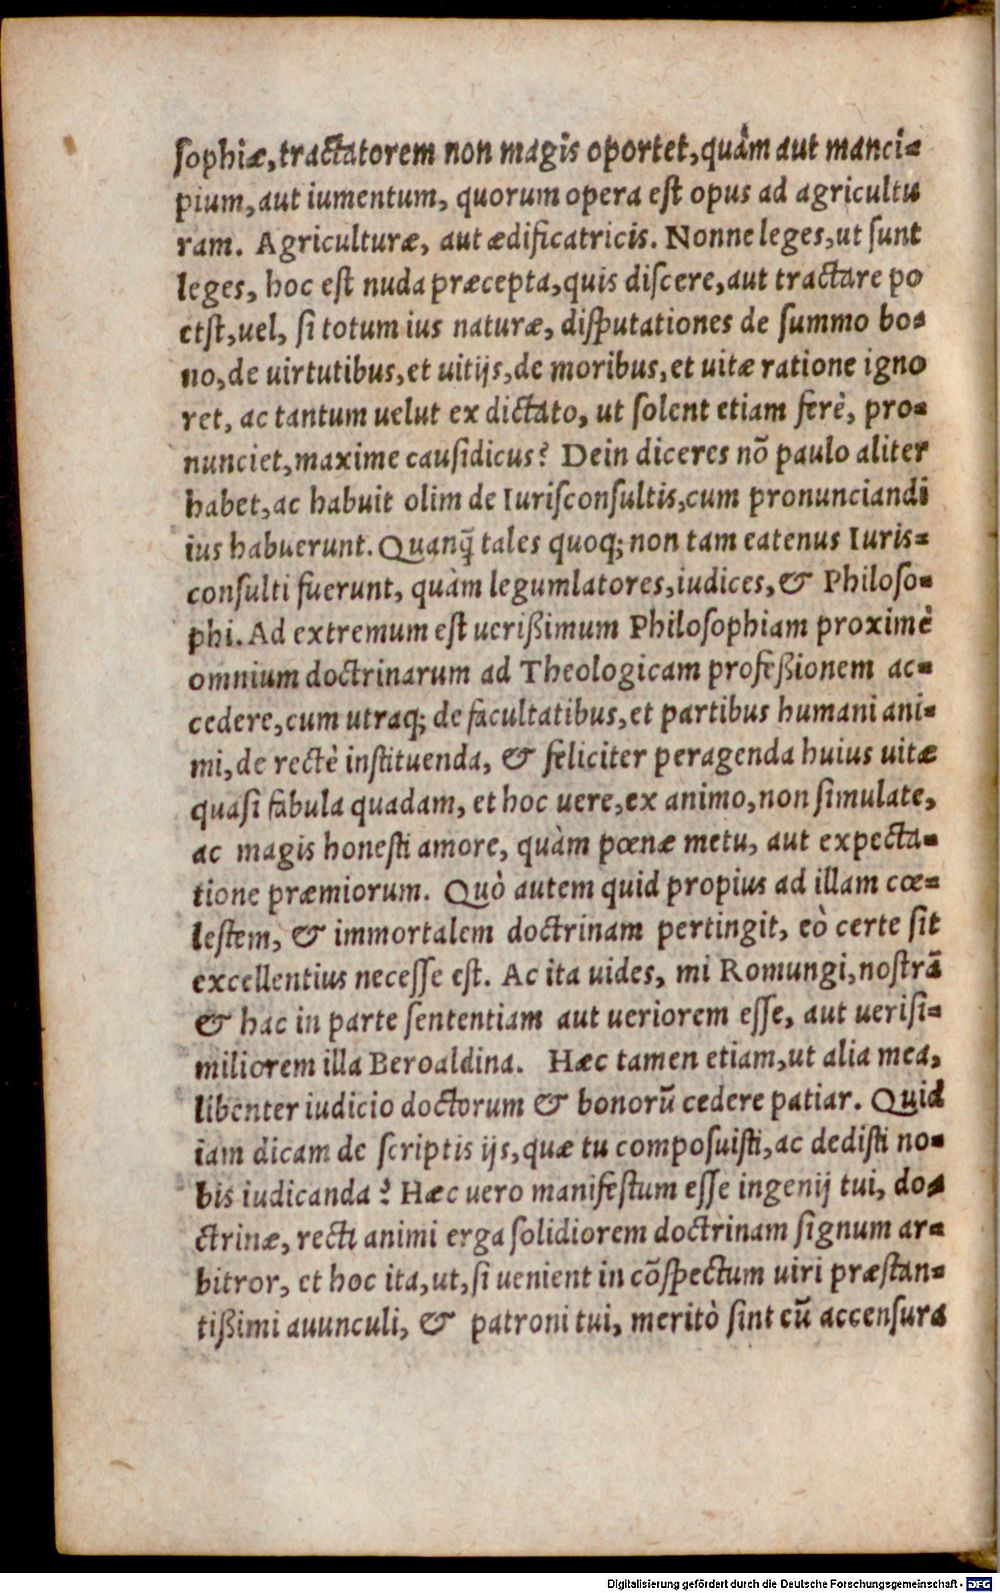 sophiæ, tractatorem non magis oportet, quàm aut manci-
pium, aut iumentum, quorum opera est opus ad agricultu
ram. Agriculturæ, aut ædificatricis. Nonne leges, ut sunt
leges, hoc est nuda præcepta, quis discere, aut tractare po
etst, uel, si totum ius naturæ, disputationes de summo bo-
no, de uirtutibus, et uitijs, de moribus, et uitæ ratione igno
ret, ac tantum uelut ex dictato, ut solent etiam ferè, pro-
nunciet, maxime causidicus? Dein diceres nõ paulo aliter
habet, ac habuit olim de Iurisconsultis, cum pronunciandi
ius habuerunt. Quanq̃ tales quoq; non tam eatenus Iuris-
consulti fuerunt, quàm legumlatores, iudices, & Philoso-
phi. Ad extremum est uerißimum Philosophiam proximè
omnium doctrinarum ad Theologicam profeßionem ac-
cedere, cum utraq; de facultatibus, et partibus humani ani-
mi, de rectè instituenda, & feliciter peragenda huius uitæ
quasi fabula quadam, et hoc uere, ex animo, non simulate,
ac magis honesti amore, quàm pœnæ metu, aut expecta-
tione præmiorum. Quò autem quid propius ad illam cœ-
lestem, & immortalem doctrinam pertingit, eò certe sit
excellentius necesse est. Ac ita uides, mi Romungi, nostrã
& hac in parte sententiam aut ueriorem esse, aut uerisi-
miliorem illa Beroaldina. Hæc tamen etiam, ut alia mea,
libenter iudicio doctorum & bonorũ cedere patiar. Quid
iam dicam de scriptis ijs, quæ tu composuisti, ac dedisti no-
bis iudicanda? Hæc uero manifestum esse ingenij tui, do-
ctrinæ, recti animi erga solidiorem doctrinam signum ar-
bitror, et hoc ita, ut, si uenient in cõspectum uiri præstan-
tißimi auunculi, & patroni tui, meritò sint cũ accensura
Digitalisierung gefördert durch die Deutsche Forschungsgemeinschaft - DFG